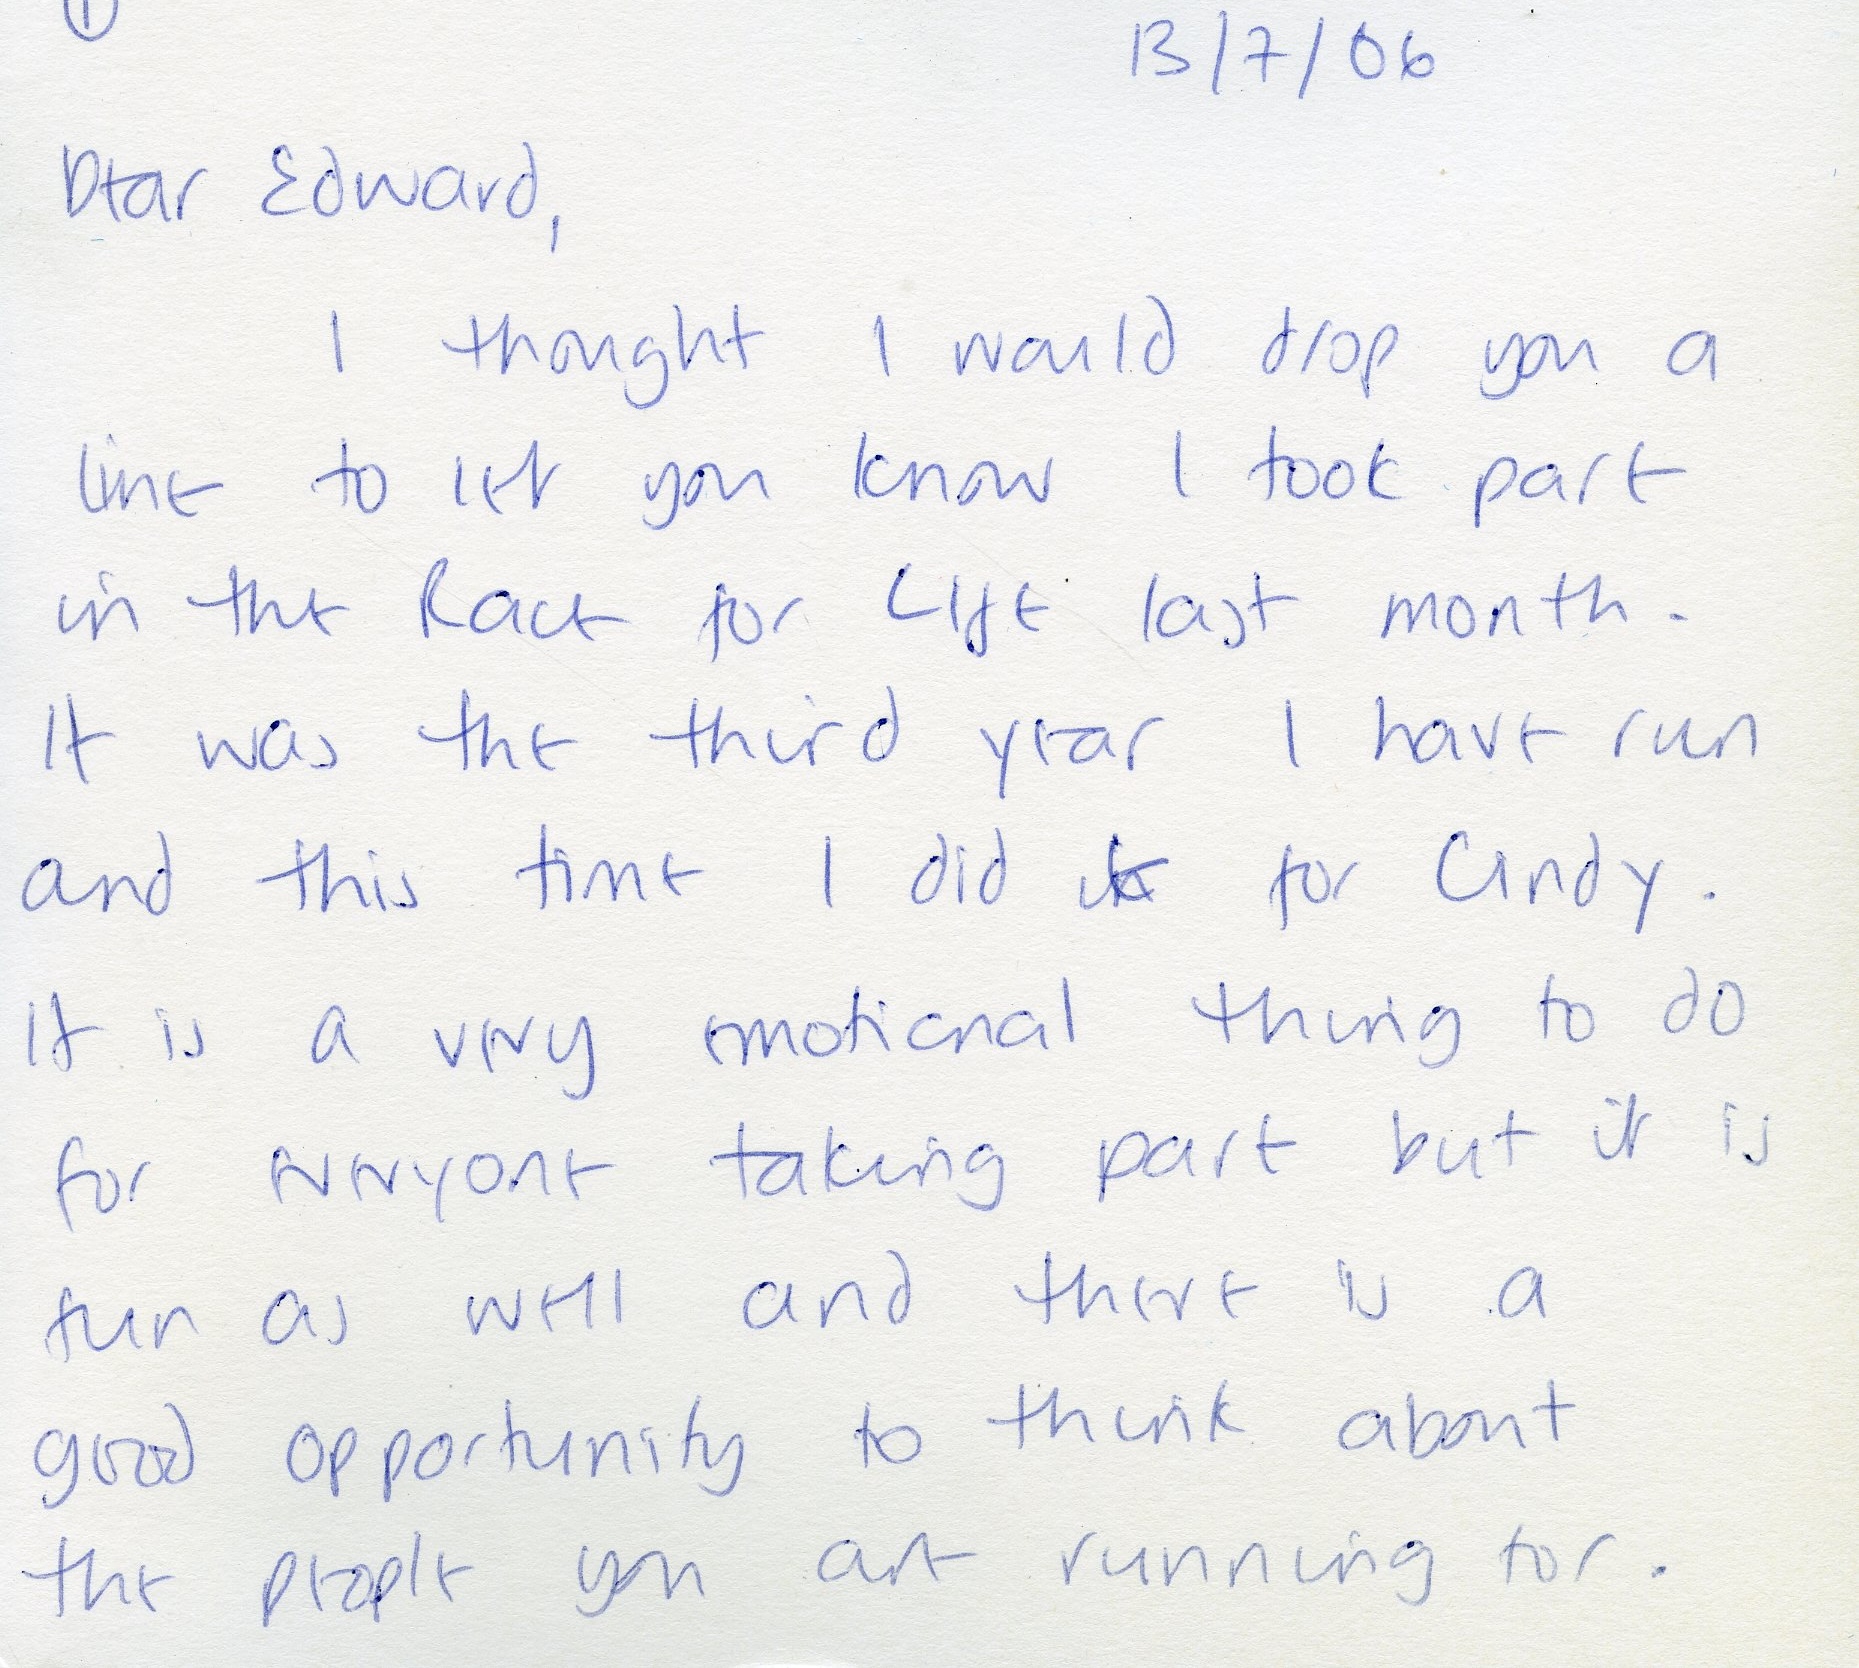 ①
13/7/06
Dear Edward,
I thought I would drop you a
line to let you know I took part
in the Race for Life last month.
It was the third year I have run
and this time I did it for Cindy.
It is a very emotional thing to do
for everyone taking part but it is
fun as well and there is a
good opportunity to think about
the people you are running for.